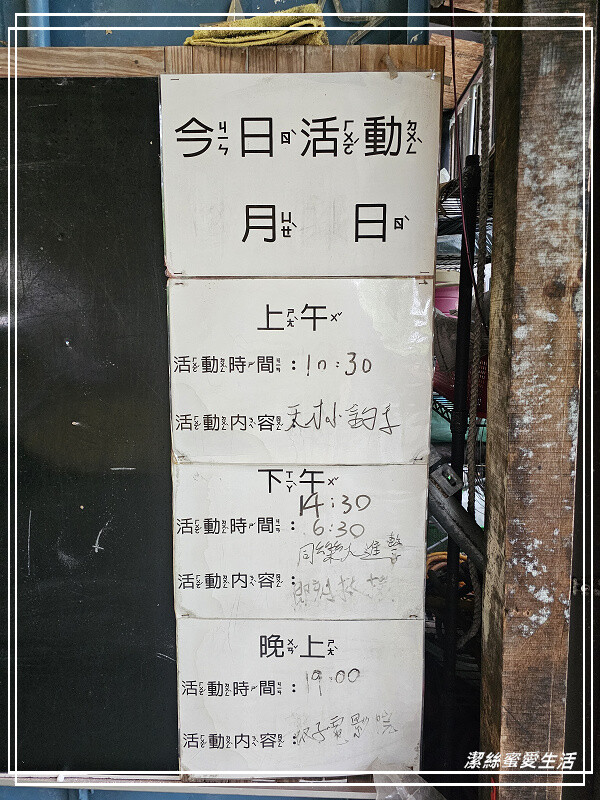 今ㄐㄧㄣ日ㄖˋ活ㄏㄨㄛˊ動ㄉㄨㄥˋ
月ㄩㄝˋ 日ㄖˋ
上ㄕㄤˋ午ㄨˇ
活ㄏㄨㄛˊ動ㄉㄨㄥˋ時ㄕˊ間ㄐㄧㄢ：10:30
活ㄏㄨㄛˊ動ㄉㄨㄥˋ內ㄋㄟˋ容ㄖㄨㄥˊ：手
下ㄒㄧㄚˋ午ㄨˇ
14:30
活ㄏㄨㄛˊ動ㄉㄨㄥˋ時ㄕˊ間ㄐㄧㄢ：6:30
同樂大進擊
活ㄏㄨㄛˊ動ㄉㄨㄥˋ內ㄋㄟˋ容ㄖㄨㄥˊ：
晚ㄨㄢˇ上ㄕㄤˋ
活ㄏㄨㄛˊ動ㄉㄨㄥˋ時ㄕˊ間ㄐㄧㄢ：19:00
活ㄏㄨㄛˊ動ㄉㄨㄥˋ內ㄋㄟˋ容ㄖㄨㄥˊ：子電影院
潔絲蜜愛生活